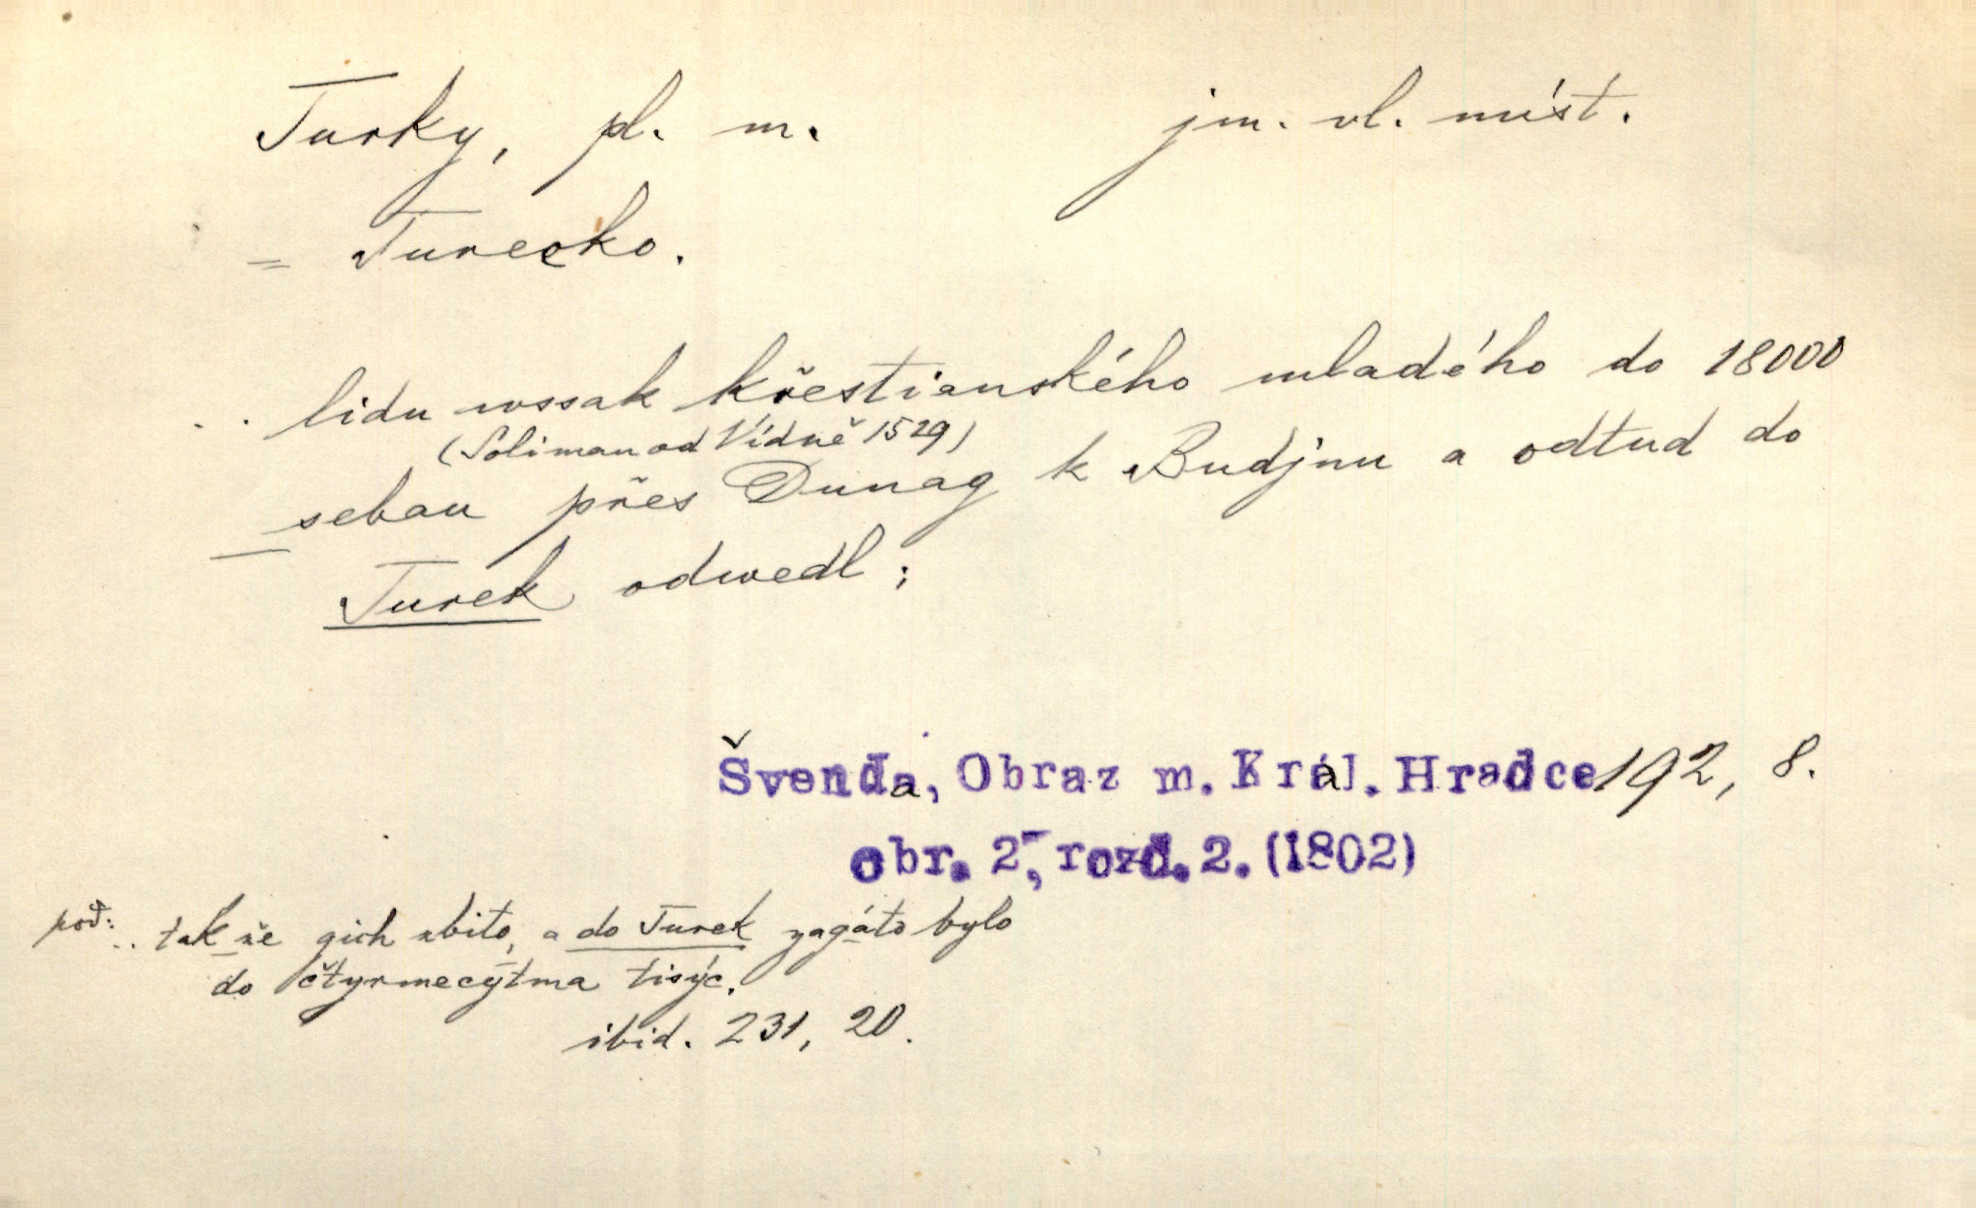 Turky, pl. m. jm. vl. míst.
= Turecko.
. . lidu wssak křestianského mladého do 18000
(Soliman od Vídně 1529)
sebau přes Dunag k Budjnu a odtud do
Turek odwedl ;
Švenda, Obraz m. Král. Hradce 192, 8.
obr. 2, rozd. 2. (1802)
pod: .. tak že gich zbito, a do Turek zagáto bylo
do čtyrmecýtma tisýc.
ibid. 231, 20.